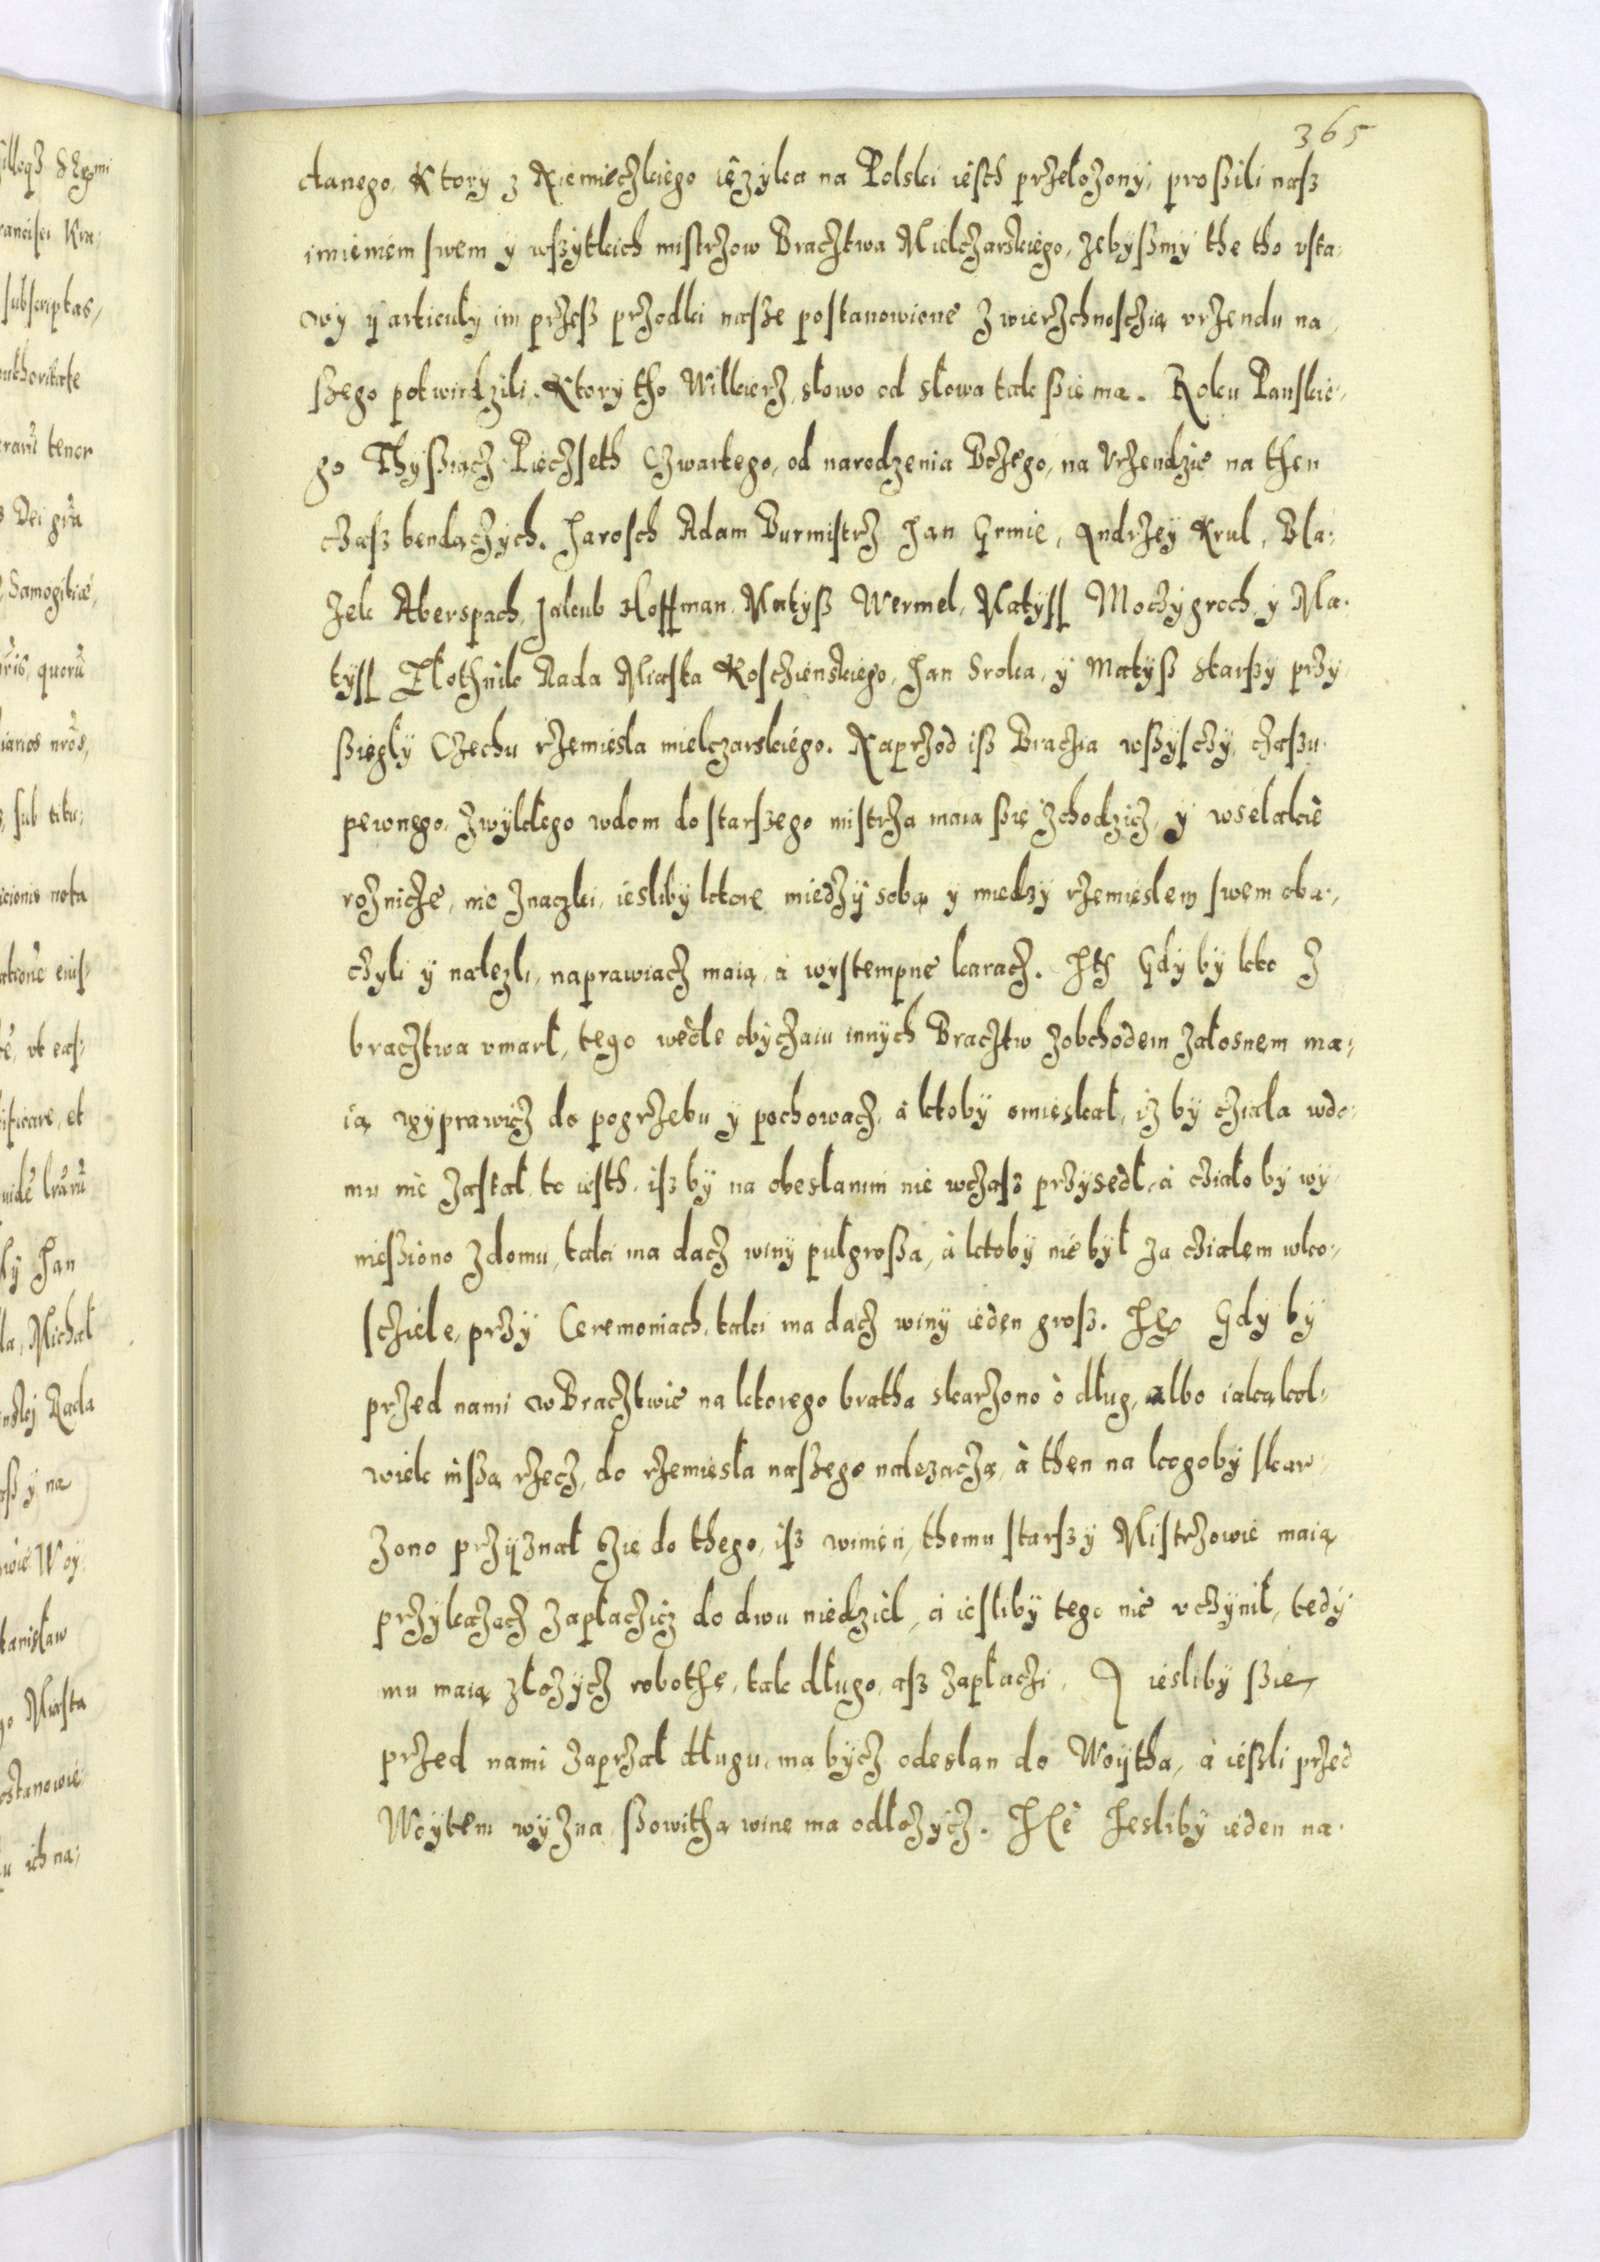 365
danego, Ktory z Niemieczkiego ięzyka na Polski iesth przełożony, prosßili nasz
imieniem swem y wszytkich mistrzow Braczthwa Mielczarskiego, zebyßmy the tho vsta-
wy y articuły im przesz przodki nasze postanowione zwierzchnosczią vrzendu na-
szego potwirdzili. Ktory tho Wilkierz słowo od słowa tak ßie ma. Roku Panskie-
go Thyßiącz Piećzseth Czwartego, od narodzenia Bożego, na Vrzendzie na then
czasz bendączych. Jarosch Adam Burmistrz Jan Grmie, Andrzey Krul, Bła-
żek Aberspach, Jakub Hoffman, Matyß Wermel, Matyss Moczygroch y Ma-
tyss Złothnik Rada Miasta Kosczienskiego, Jan Sroka, y Matyß starszy przy-
ßiegły Czechu rzemiesla mielczarskiego. Naprzod isz Braczia wßysczy, czaßu
pewnego, zwykłego wdom do starszego mistrza maia ßię zchodzicz, y wselakie
rożnicze, nie znaczki, iesliby ktore miedzy sobą y miedzy rzemieslem swem oba-
czyli y nalezli, naprawiacz maią, á wystempne karacz. Ith Gdy by kto z
bracztwa vmarł, tego wedle obyczaiu innych Bracztw zobchodem żałosnem ma-
ią wyprawicz do pogrzebu y pochowacz, á ktoby omieskał, iż by cziała wdo-
mu nie zastał, to iesth, isz by na obesłanim nie wczasz przysedł, á cziało by wy-
nießiono zdomu, taki ma dacz winy pułgroßa, á ktoby nie był za cziałem wko-
sczielе, przy Ceremoniach, taki ma dacz winy ieden grosz. Ite Gdy by
przed nami wBracztwie na ktorego bratha skarżono ò dług, albo iakąkol-
wiek inßą rzecz, do rzemiesła naszego należączą, à then na kogoby skar-
żono przyznał szie do thego, isz winien, themu starszy Mistrzowie maią
przykazacz zapłaczicz do dwu niedziel, á iesliby tego nie vczynił, tedy
mu maią złożycz robothe, tak długo, asz zapłaczi, A iesliby ßie
przed nami zaprzał długu, ma bycz odesłan do Woytha, á ießli przed
Woytem wyzna ßowithą wine ma odłożycz. Ite Iesliby ieden na-